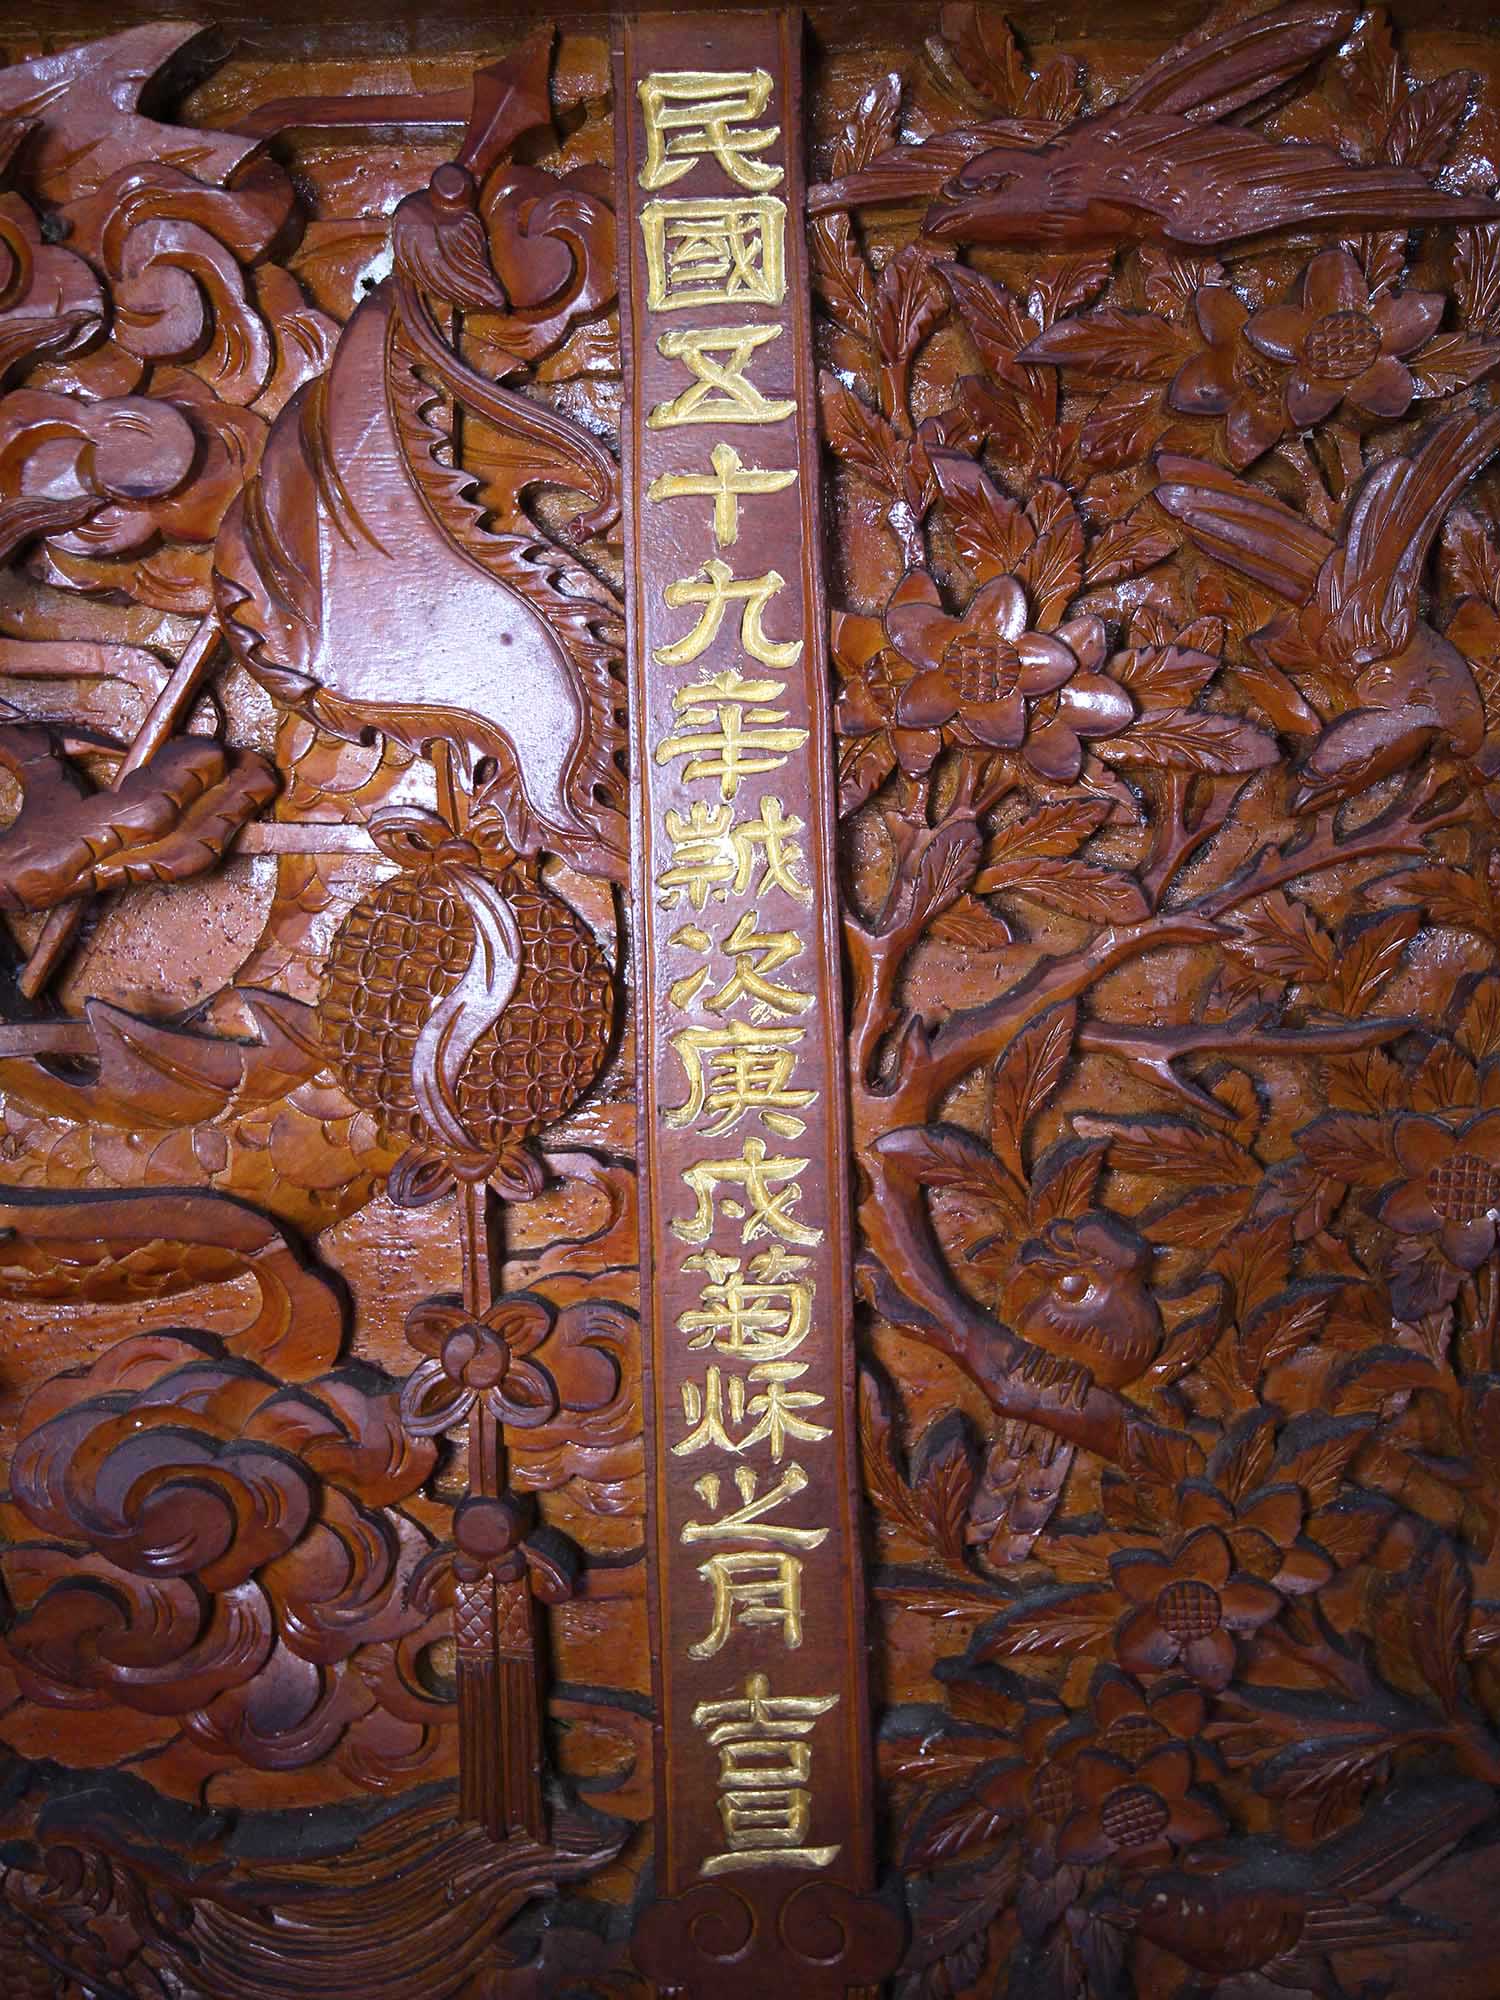 民國五十九年歲次庚戌菊秌之月 吉旦